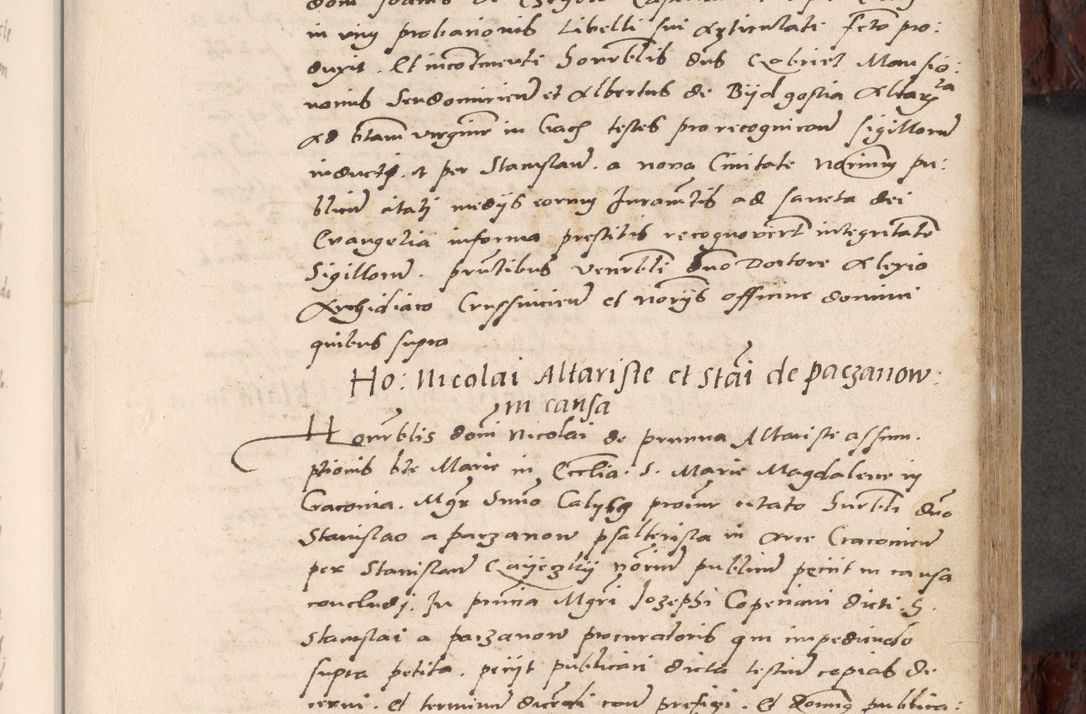 in vim probationis Libelli sui Articulati scto pro:
duxit. Et incontinente honrblis dns Gabriel Mansio:
narius Sendomirien et Albertus de Bijdgostia Altarista
ad btam virginem in Crach testes pro recognicom sigillorum
inducti. et per Stanislaum. a nova Civitate Notarium pu:
blicum citati medijs eorum Juramtis ad sancta dei
Evangelia in forma prestitis recognovert integritatem
Sigillorum. prntibus venrbli dno Doctore Alexio
Archidiaco Crussvicien et Norijs officine domini
quibus supra
Ho: Nicolai Altariste et Stai de paczanow:
in causa
Honrblis domi Nicolai de prunna Altariste assum.
ptionis bte Marie in Ecclia. S. Marie Magdalene in
Cracovia. Mgr procur citato honrbli dno
Stanislao a paczanow psalterista in Arce Cracovien
per Stanislaum norium publicum peciit in causa
concludj. In prncia Mgri Josephi Copeciani dicti S.
Stanislai a paczanow procuratoris qui impediendo
supra petita. peciit publicari dicta testium copias de
cerni. et terminum dicendi contra prefigi. Et Domnus publica: